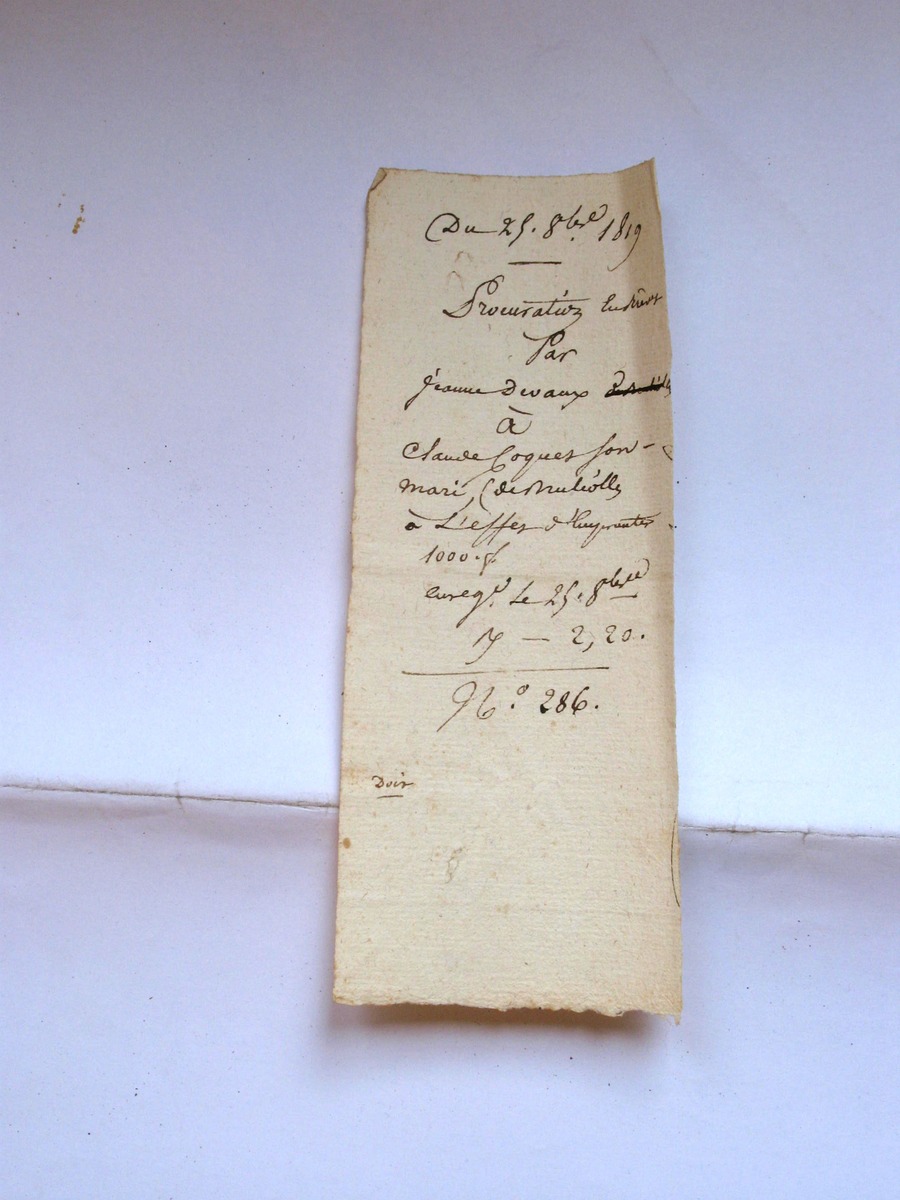 Du 25. 8bre 1819
Procuration
Par
jeanne Devaux
à
Claude Coquet son
mari,
à L'effet d'Emprunter
1000.f
enregé. le 25. 8bre
2,20.
No. 286.
Doit